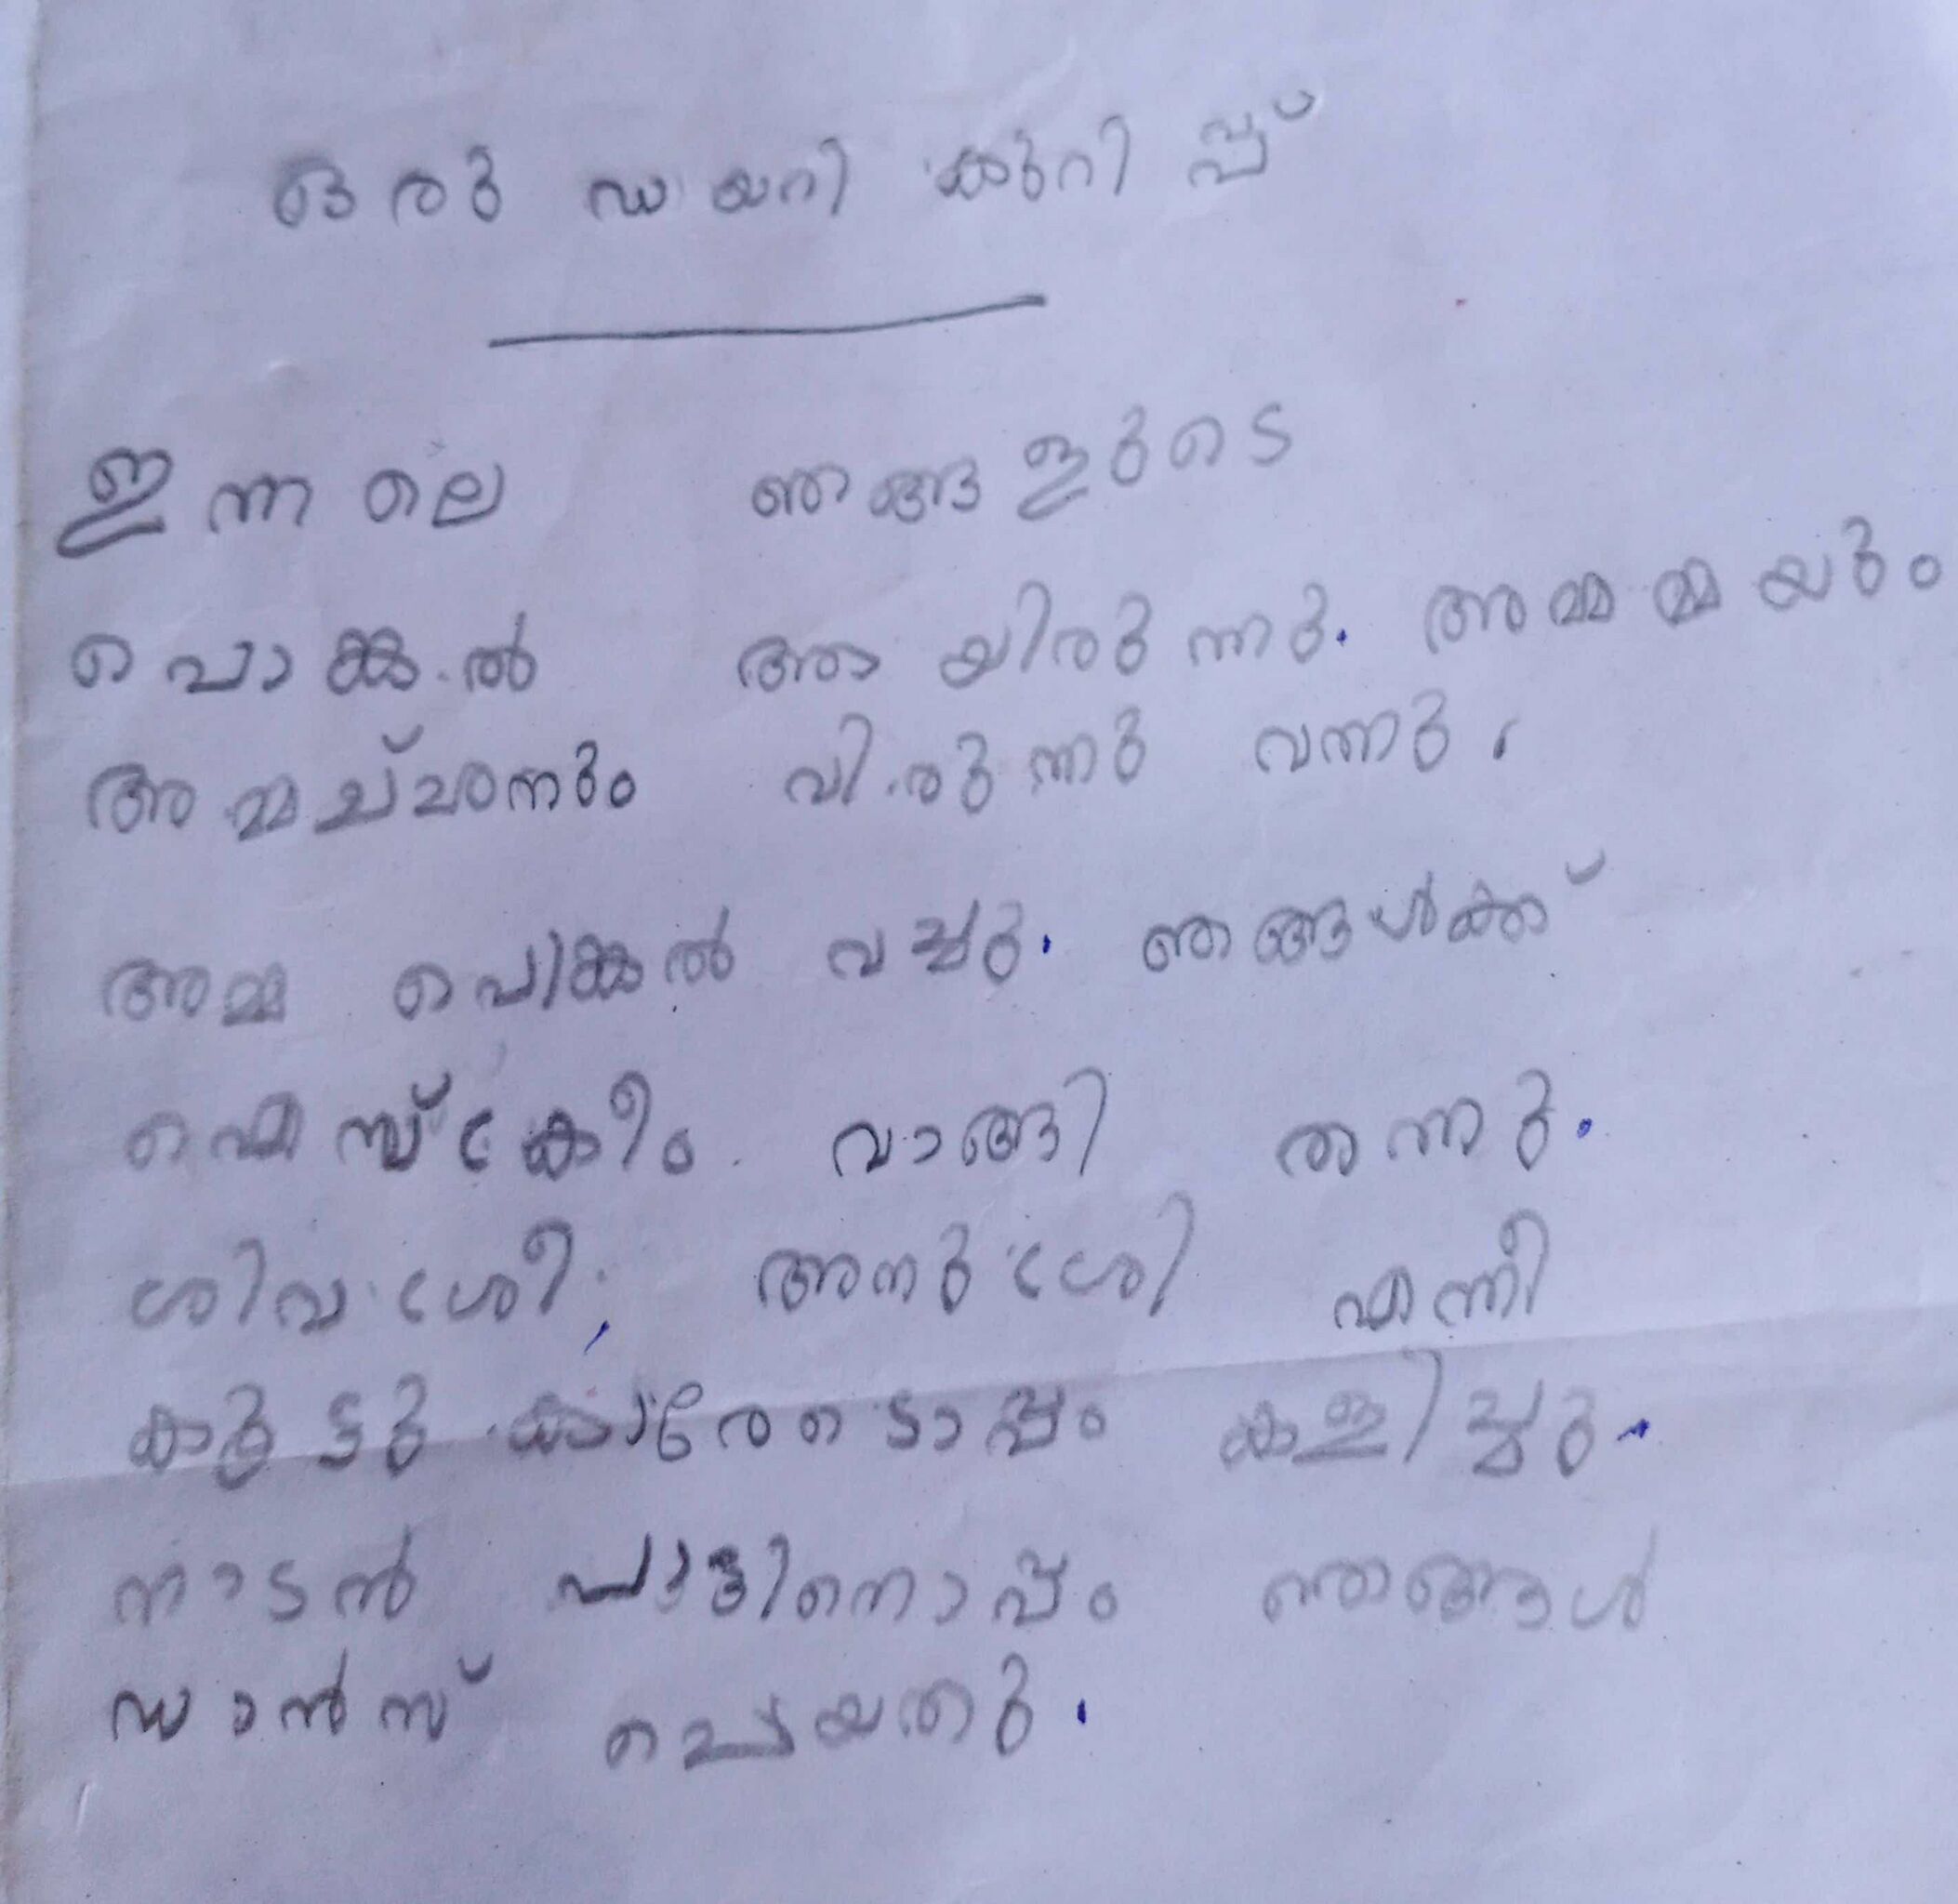 ഒരു ഡയറി കുറിപ്പ്
ഇന്നലെ ഞങ്ങളുടെ
പൊങ്കൽ ആയിരുന്നു. അമ്മമ്മയും
അമ്മച്ചനും വിരുന്നു വന്നു.
അമ്മ പൊങ്കൽ വച്ചു. ഞങ്ങൾക്ക്
ഐസ്ക്രീം വാങ്ങി തന്നു.
ശിവശ്രീ, അനുശ്രി എന്നീ
കുട്ടുകാരോടൊപ്പം കളിച്ചു.
നാടൻ പാട്ടിനൊപ്പം ഞങ്ങൾ
ഡാൻസ് ചെയതു.